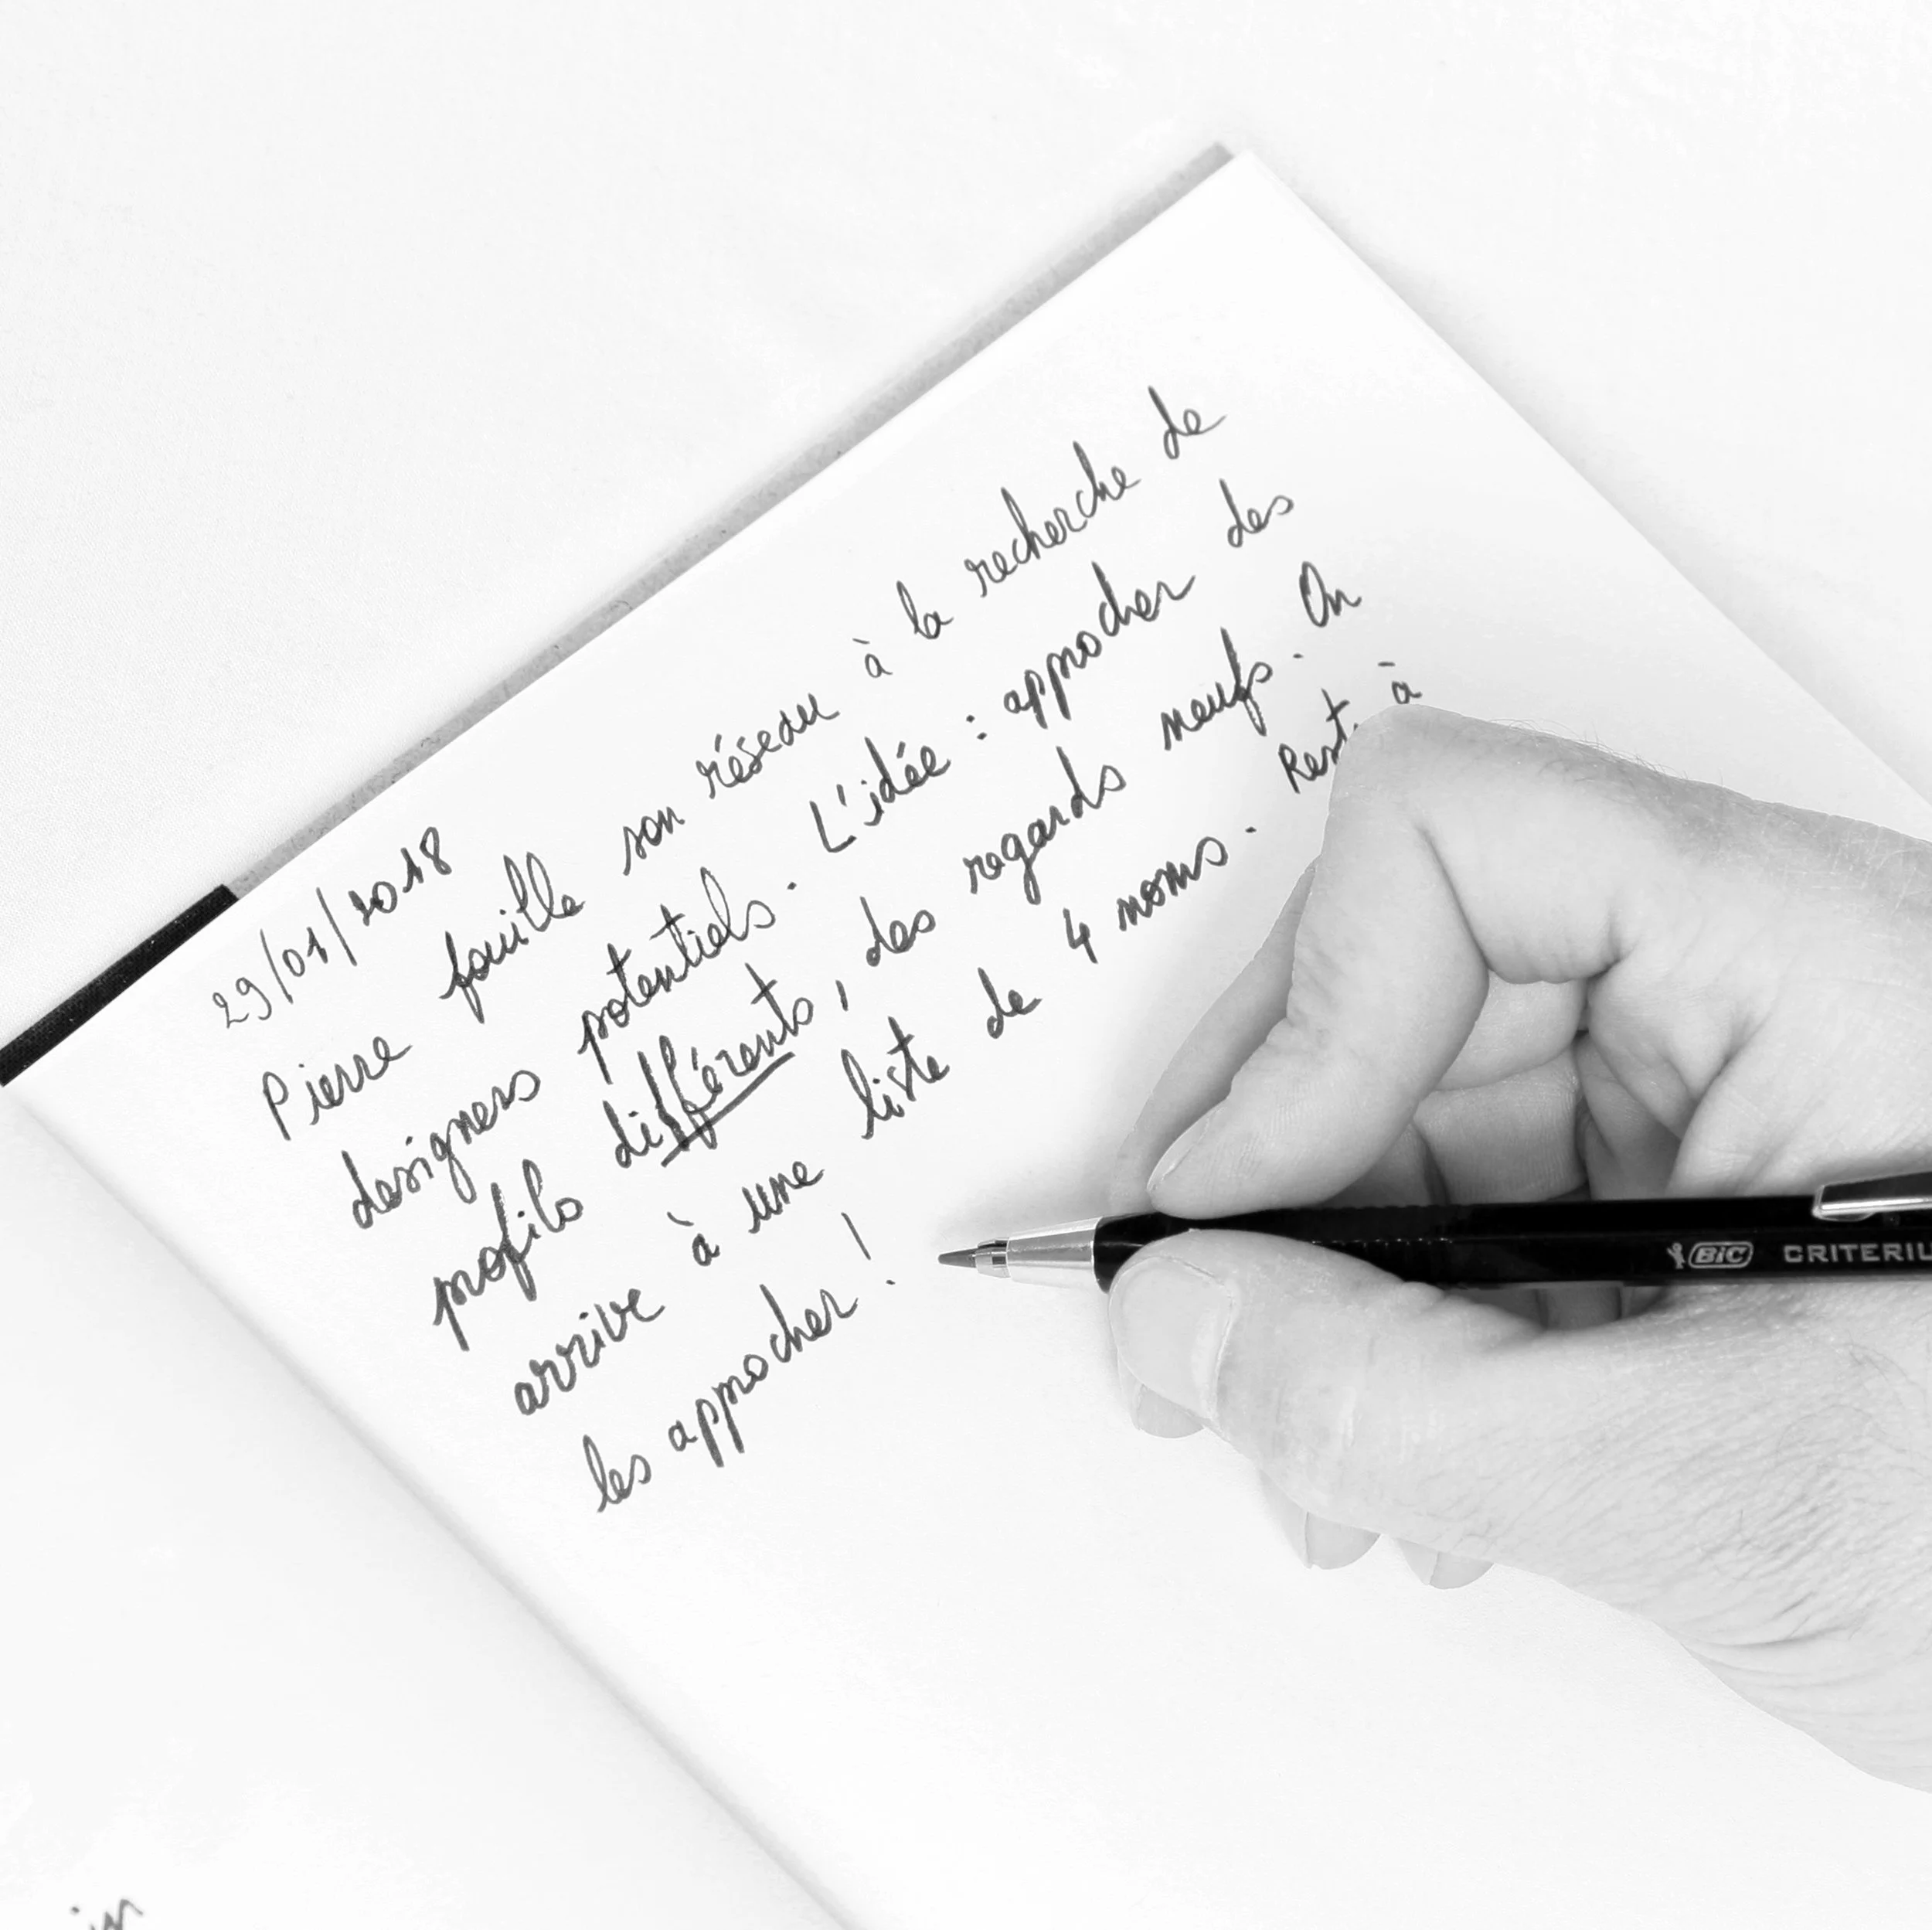 29/01/2018
Pierre fouille son réseau à la recherche de
designers potentiels. L'idée : approcher des
profils différents, des regards neufs. On
arrive à une liste de 4 noms. à
les approcher !
BIC